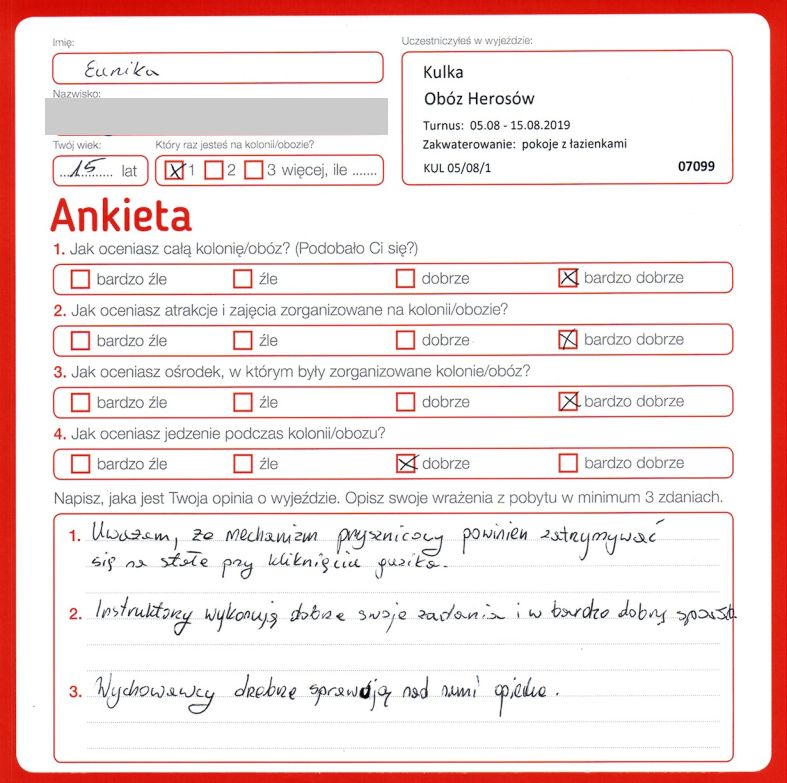 Imię:
Eunika
Uczestniczyłeś w wyjeździe:
Kulka
Obóz Herosów
Turnus: 05.08 - 15.08.2019
Zakwaterowanie: pokoje z łazienkami
KUL 05/08/1 07099
Nazwisko:
Twój wiek: Który raz jesteś na kolonii/obozie?
15 lat 1 2 3 więcej, ile .......
Ankieta
1. Jak oceniasz całą kolonię/obóz? (Podobało Ci się?)
bardzo źle źle dobrze bardzo dobrze
2. Jak oceniasz atrakcje i zajęcia zorganizowane na kolonii/obozie?
bardzo źle źle dobrze bardzo dobrze
3. Jak oceniasz ośrodek, w którym były zorganizowane kolonie/obóz?
bardzo źle źle dobrze bardzo dobrze
4. Jak oceniasz jedzenie podczas kolonii/obozu?
bardzo źle źle dobrze bardzo dobrze
Napisz, jaka jest Twoja opinia o wyjeździe. Opisz swoje wrażenia z pobytu w minimum 3 zdaniach.
1. Uważam, że mechanizm prysznicowy powinien zatrzymywać
się na stałe przy kliknięciu guzika.
2. Instruktorzy wykonują dobrze swoje zadania i w bardzo dobry sposób
3. Wychowawcy dobrze sprawują nad nami opiekę.